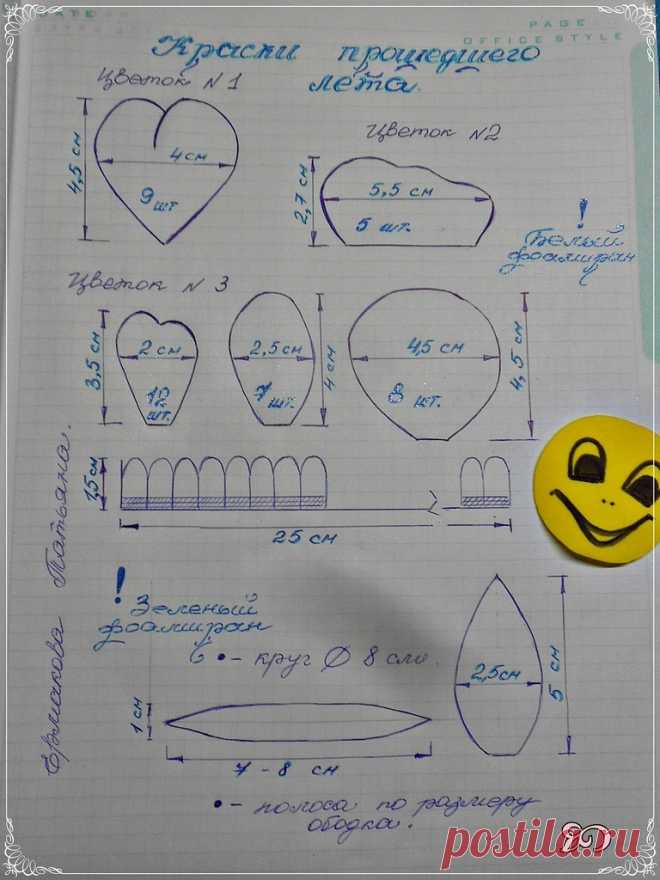 PAGE
OFFICE STYLE
Краски прошедшего
лета.
Цветок N1
4,5 см
4 см
9 шт.
Цветок N2
2,7 см
5,5 см
5 шт.
!
Белый
фоамиран
Цветок N 3
3,5 см
2 см
12
шт.
2,5 см
7 шт.
4 см
4,5 см
8 шт.
4,5 см
1,5 см
25 см
Ермакова Татьяна.
!
Зеленый
фоамиран
• - круг Ø 8 см.
2,5 см
5 см
1 см
7 - 8 см
• - полоса по размеру
ободка.
postila.ru